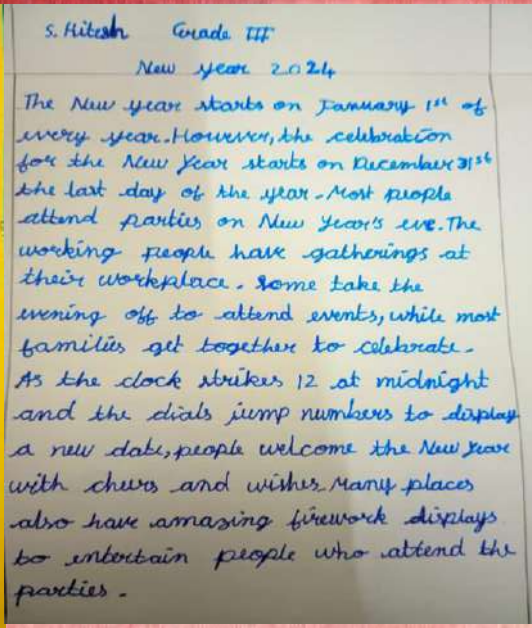 S. Hitesh Grade III
New year 2024
The New year starts on January 1st of
every year. However, the celebration
for the New Year starts on December 31st
the last day of the year. Most people
attend parties on New Year's eve. The
working people have gatherings at
their workplace. Some take the
evening off to attend events, while most
families get together to celebrate.
As the clock strikes 12 at midnight
and the dials jump numbers to display
a new date, people welcome the New Year
with cheers and wishes. Many places
also have amazing firework displays
to entertain people who attend the
parties.